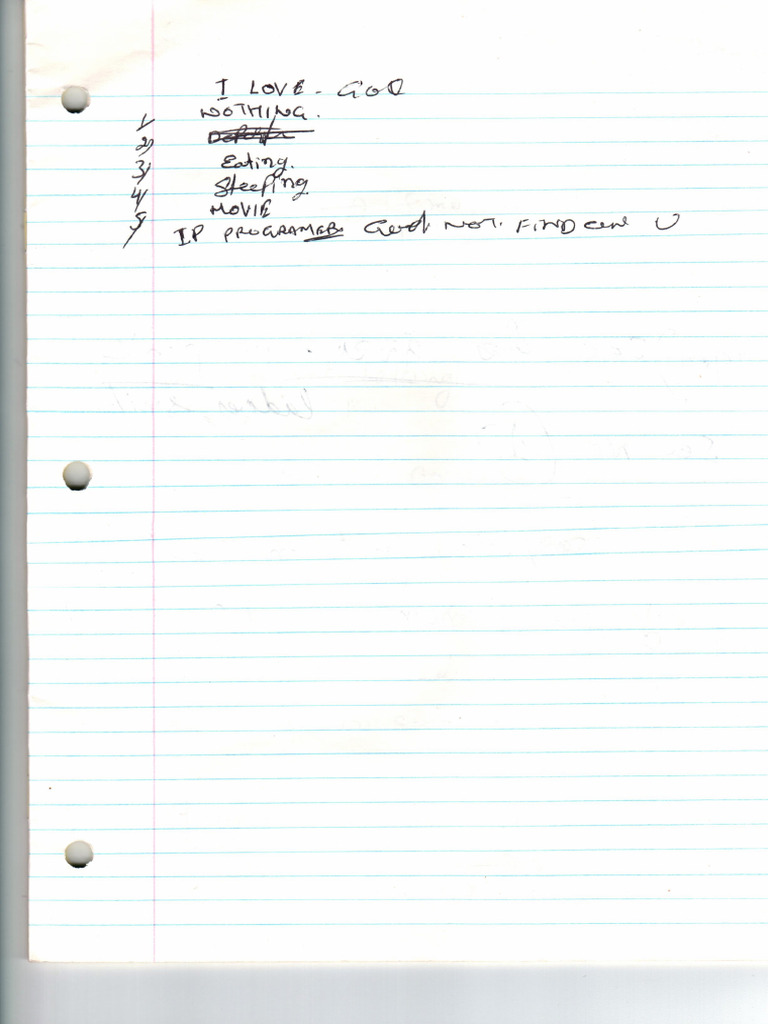 I LOVE - GOD
1) NOTHING.
2)
3) Eating.
4) Sleeping
5) MOVIE
) IP PROGRAMER. NOT. FIND U